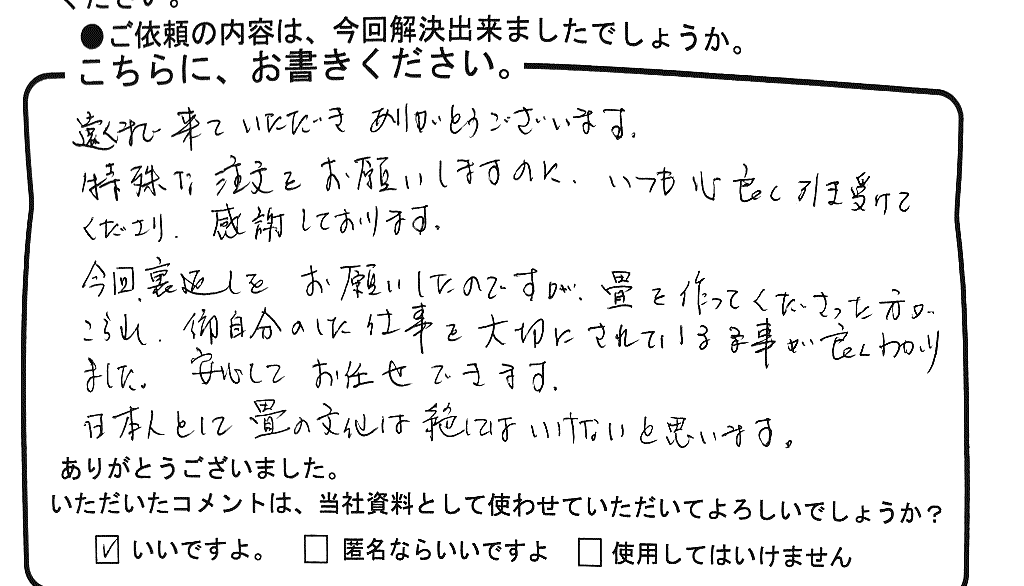 ください。
●ご依頼の内容は、今回解決出来ましたでしょうか。
こちらに、お書きください。
遠くまで来ていただきありがとうございます。
特殊な注文をお願いしますのに、いつも心良く引き受けて
くださり、感謝しております。
今回、裏返しをお願いしたのですが、畳を作ってくださった方が
こられ、御自分のした仕事を大切にされている事が良くわかり
ました。安心してお任せできます。
日本人として畳の文化は絶やしてはいけないと思います。
ありがとうございました。
いただいたコメントは、当社資料として使わせていただいてよろしいでしょうか？
☑ いいですよ。 □ 匿名ならいいですよ □ 使用してはいけません